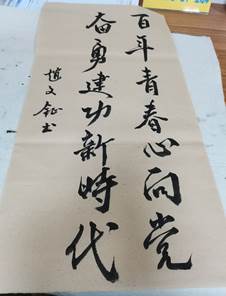 百年青春心向党
奋勇建功新時代
文钲书